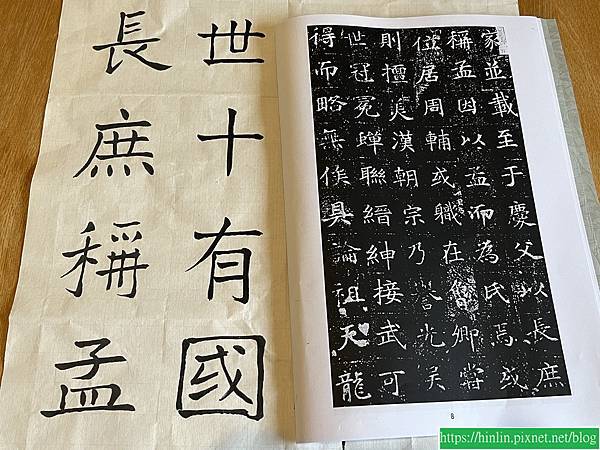 世十有國
長庶稱孟
家並載至于慶父以長庶
稱孟因以孟而為氏焉或
位居周輔或職在魯卿嘗
則擅美漢朝宗乃譽光关
世冠冕蟬聯縉紳接武可
得而略無俟具論祖天龍
8
https://hinlin.pixnet.net/blog